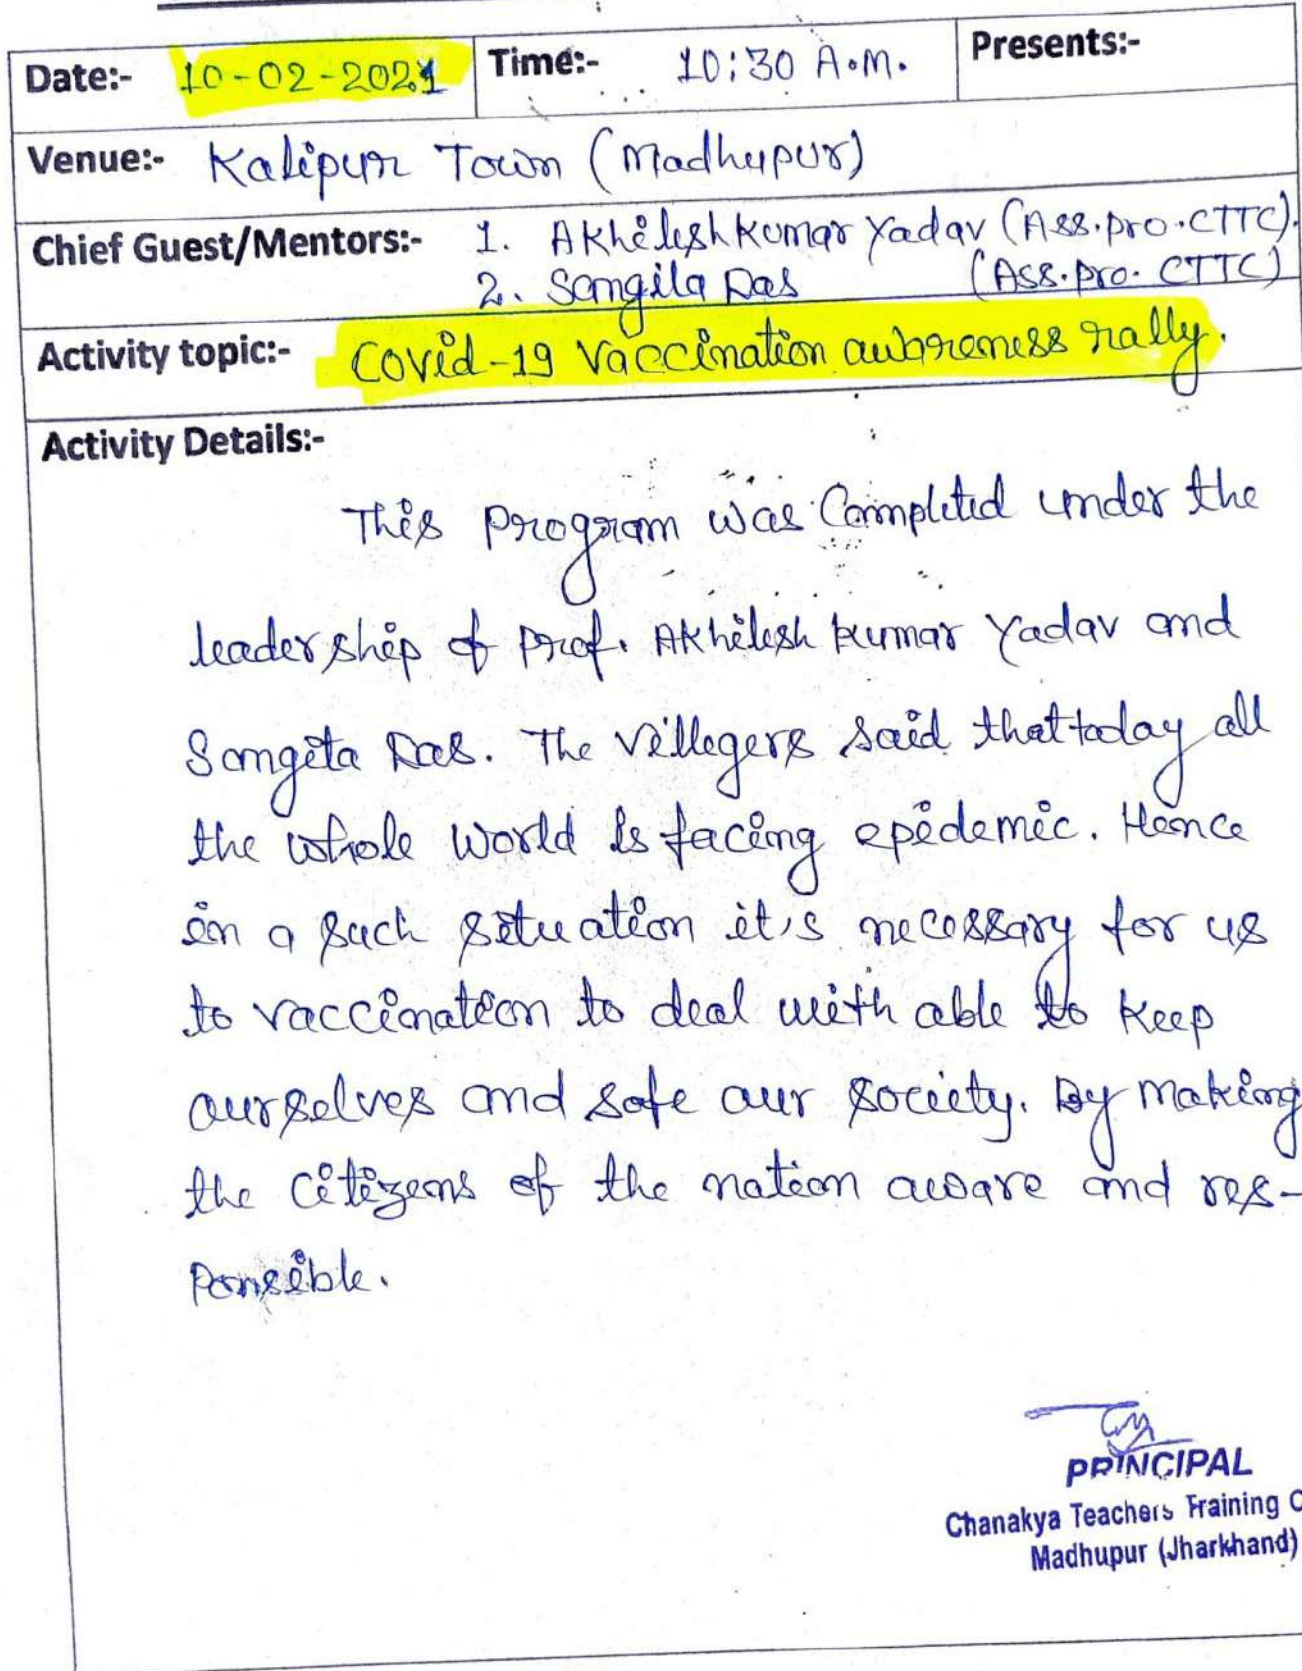 Date:- 10-02-2021 Time:- 10:30 A.M. Presents:-
Venue:- Kalipur Town (Madhupur)
Chief Guest/Mentors:- 1. Akhilesh Kumar Yadav (Ass.pro.CTTC).
2. Sangita Das (Ass.pro. CTTC)
Activity topic:- Covid-19 Vaccination awareness rally.
Activity Details:-
This program was Completed under the
leadership of Prof. Akhilesh Kumar Yadav and
Sangita Das. The villegers said that today all
the whole world is facing epidemic. Hence
in a such situation it's necessary for us
to vaccination to deal with able to keep
ourselves and safe our society. By making
the citizens of the nation aware and res-
ponsible.
PRINCIPAL
Chanakya Teachers Training C
Madhupur (Jharkhand)